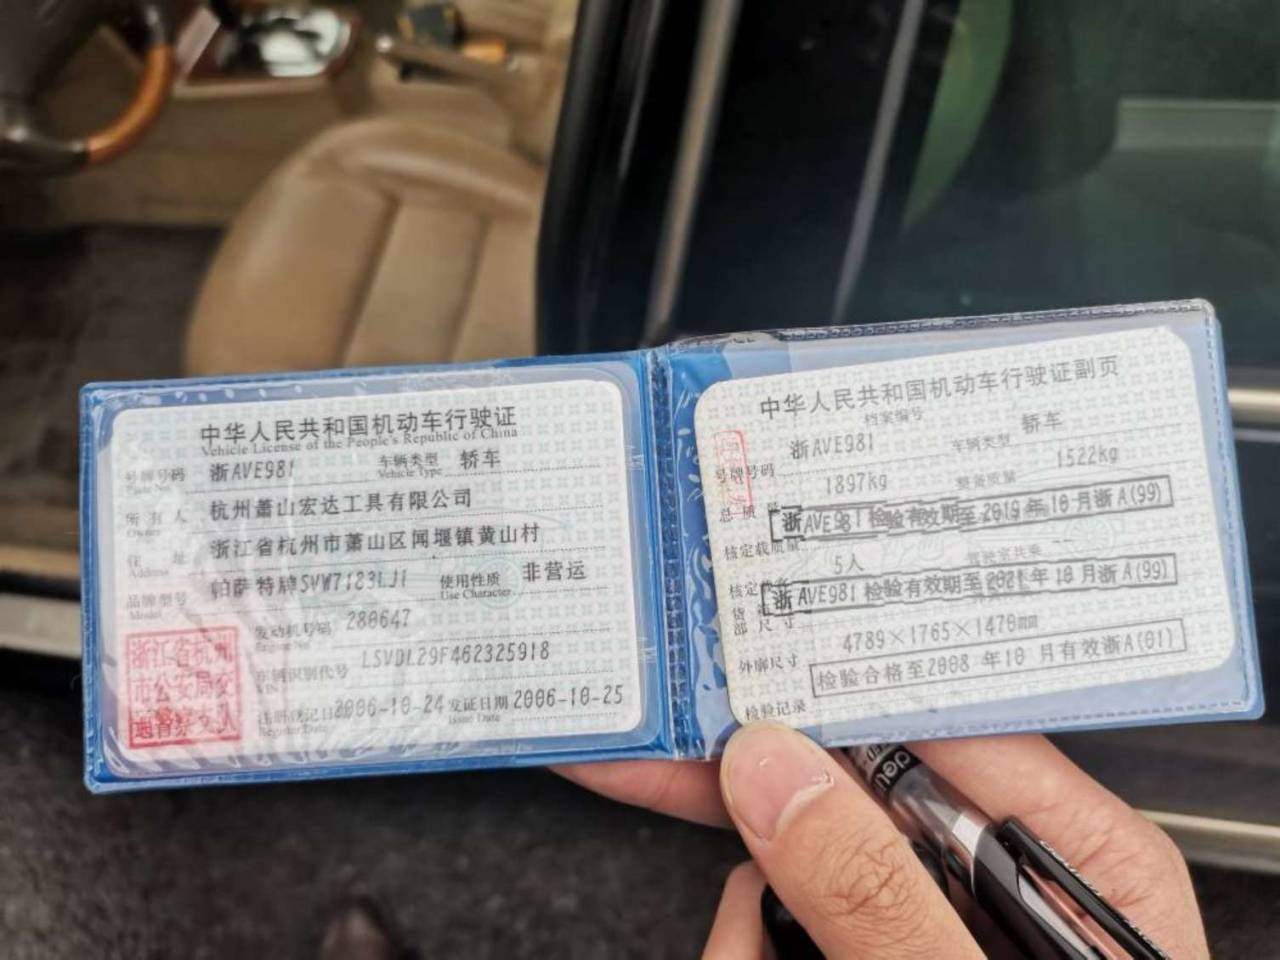 中华人民共和国机动车行驶证
Vehicle License of the People's Republic of China
号牌号码 浙AVE981 车辆类型 轿车
Plate No. Vehicle Type
所有人 杭州萧山宏达工具有限公司
Owner
住址 浙江省杭州市萧山区闻堰镇黄山村
Address
品牌型号 帕萨特牌SVW7183LJ1 使用性质 非营运
Model Use Character
发动机号码 280647
Engine No.
车辆识别代号 LSVDL29F462325918
VIN
注册登记日 2006-10-24 发证日期 2006-10-25
Register Date Issue Date
浙江省杭州
市公安局交
通警察支队
中华人民共和国机动车行驶证副页
档案编号
号牌号码 浙AVE981 车辆类型 轿车
总质量 1897kg 整备质量 1522kg
浙AVE981 检验有效期至2019年10月浙A(99)
核定载质量
核定载客 5人 驾驶室共乘
浙AVE981 检验有效期至2021年10月浙A(99)
货厢
部尺寸
外廓尺寸 4789×1765×1470mm
检验合格至2008 年10 月有效浙A(01)
检验记录
deli